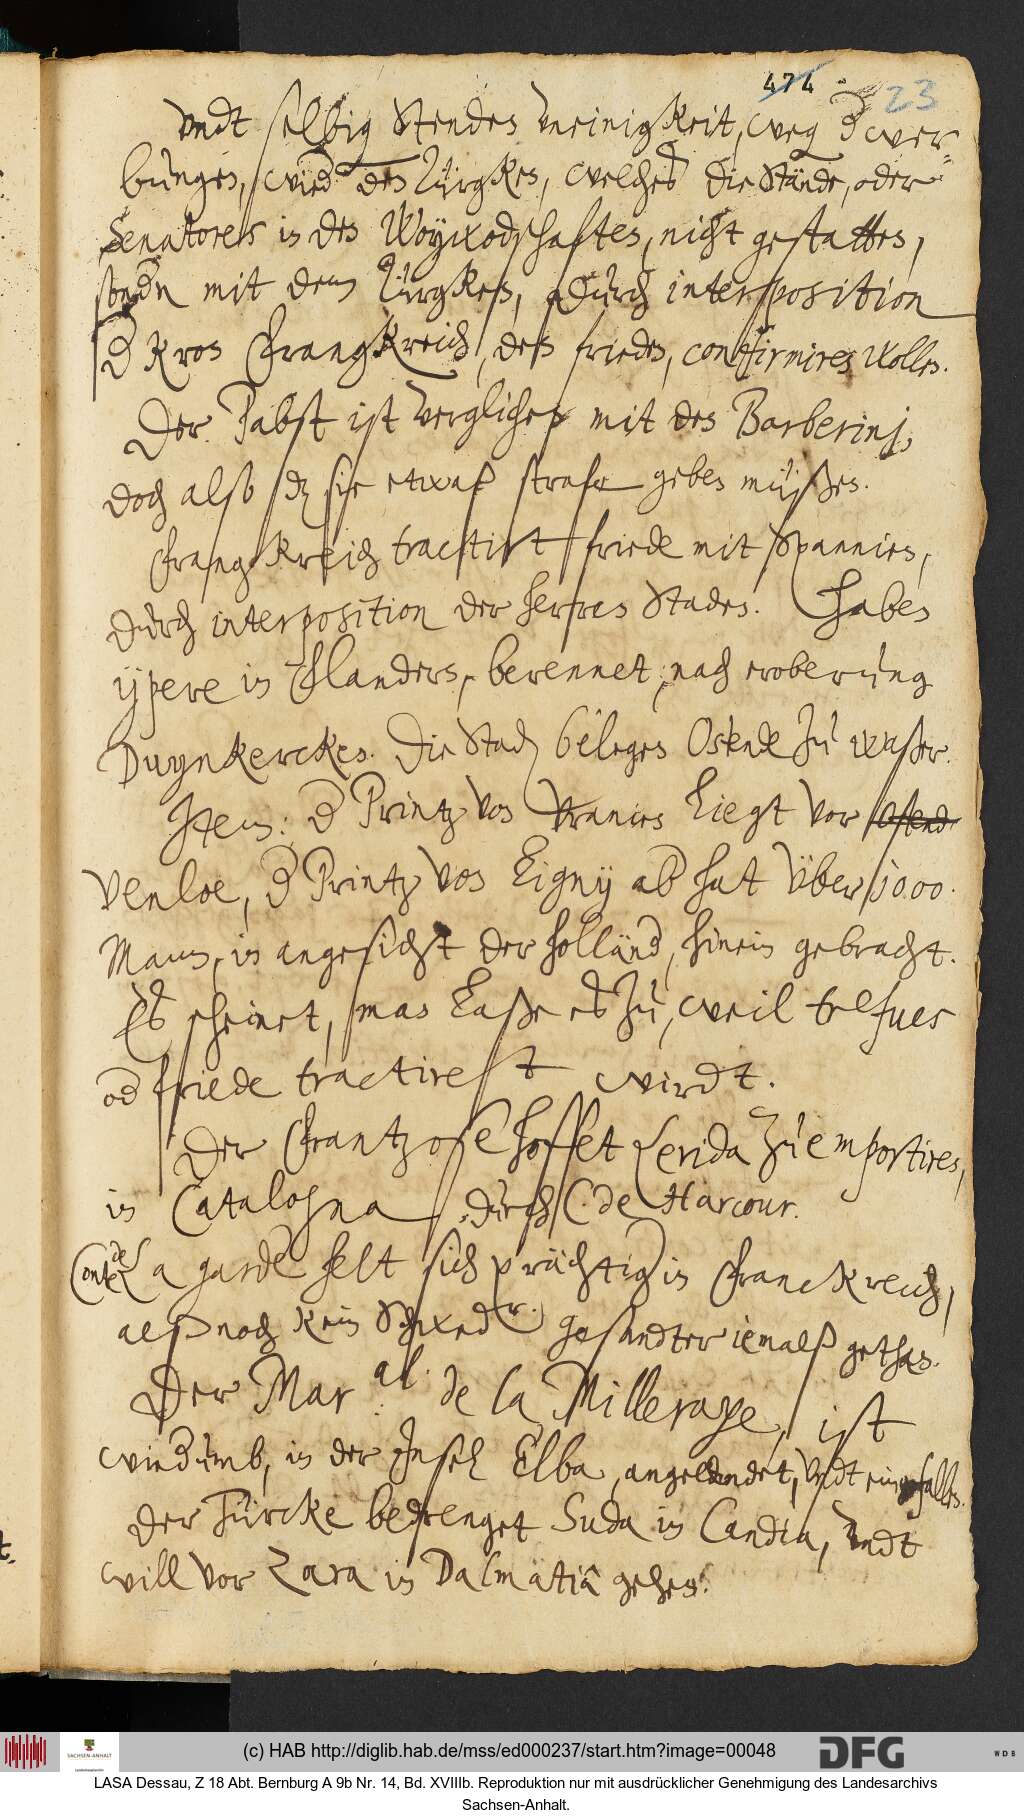 474 23
vndt selbig Stendes Vneinigkeit, weg d wer-
bungen, wied den Türgken, welches die Stände, oder
Senatores in den Woywodschaften, nicht gestatten,
sondn mit dem Türgken, durch interposition
d kron Franckreich, den frieden, confirmiren wollen.
Der Pabst ist verglichen mit den Barberinj,
doch also dz sie etwaß strafe geben müßen.
Frangkreich tractirt friede mit Spannien,
durch interposition der herren Staden. Haben
ypere in Flandern, berennet, nach eroberung
Duynkercken. Die Stad belegen Ostende zu waßer.
Item: d Printz von Vranien liegt vor Ostend
Venloe, d Printz von Ligny ab hat über 1000.
Mann, in angesicht der Holländ, hinein gebracht.
Es scheinet, man laße es zu, weil trefues
od friede tractiret wirdt.
Der Frantzose hoffet Lerida zu emportiren,
in Catalogna, durch C. de Harcour.
Conte de La garde helt sich prächtig in Franckreich,
alß noch kein Schwed.r. gesandter iemalß gethan.
Der Mar.al. de la Milleraye, ist
wiedumb, in der Insel Elba, angelendet, vndt eingefallen.
Der Türcke bedrenget Suda in Candia, vndt
will vor Zara in Dalmatiâ gehen.
t.
(c) HAB http://diglib.hab.de/mss/ed000237/start.htm?image=00048
SACHSEN-ANHALT
DFG
WDB
LASA Dessau, Z 18 Abt. Bernburg A 9b Nr. 14, Bd. XVIIIb. Reproduktion nur mit ausdrücklicher Genehmigung des Landesarchivs
Sachsen-Anhalt.